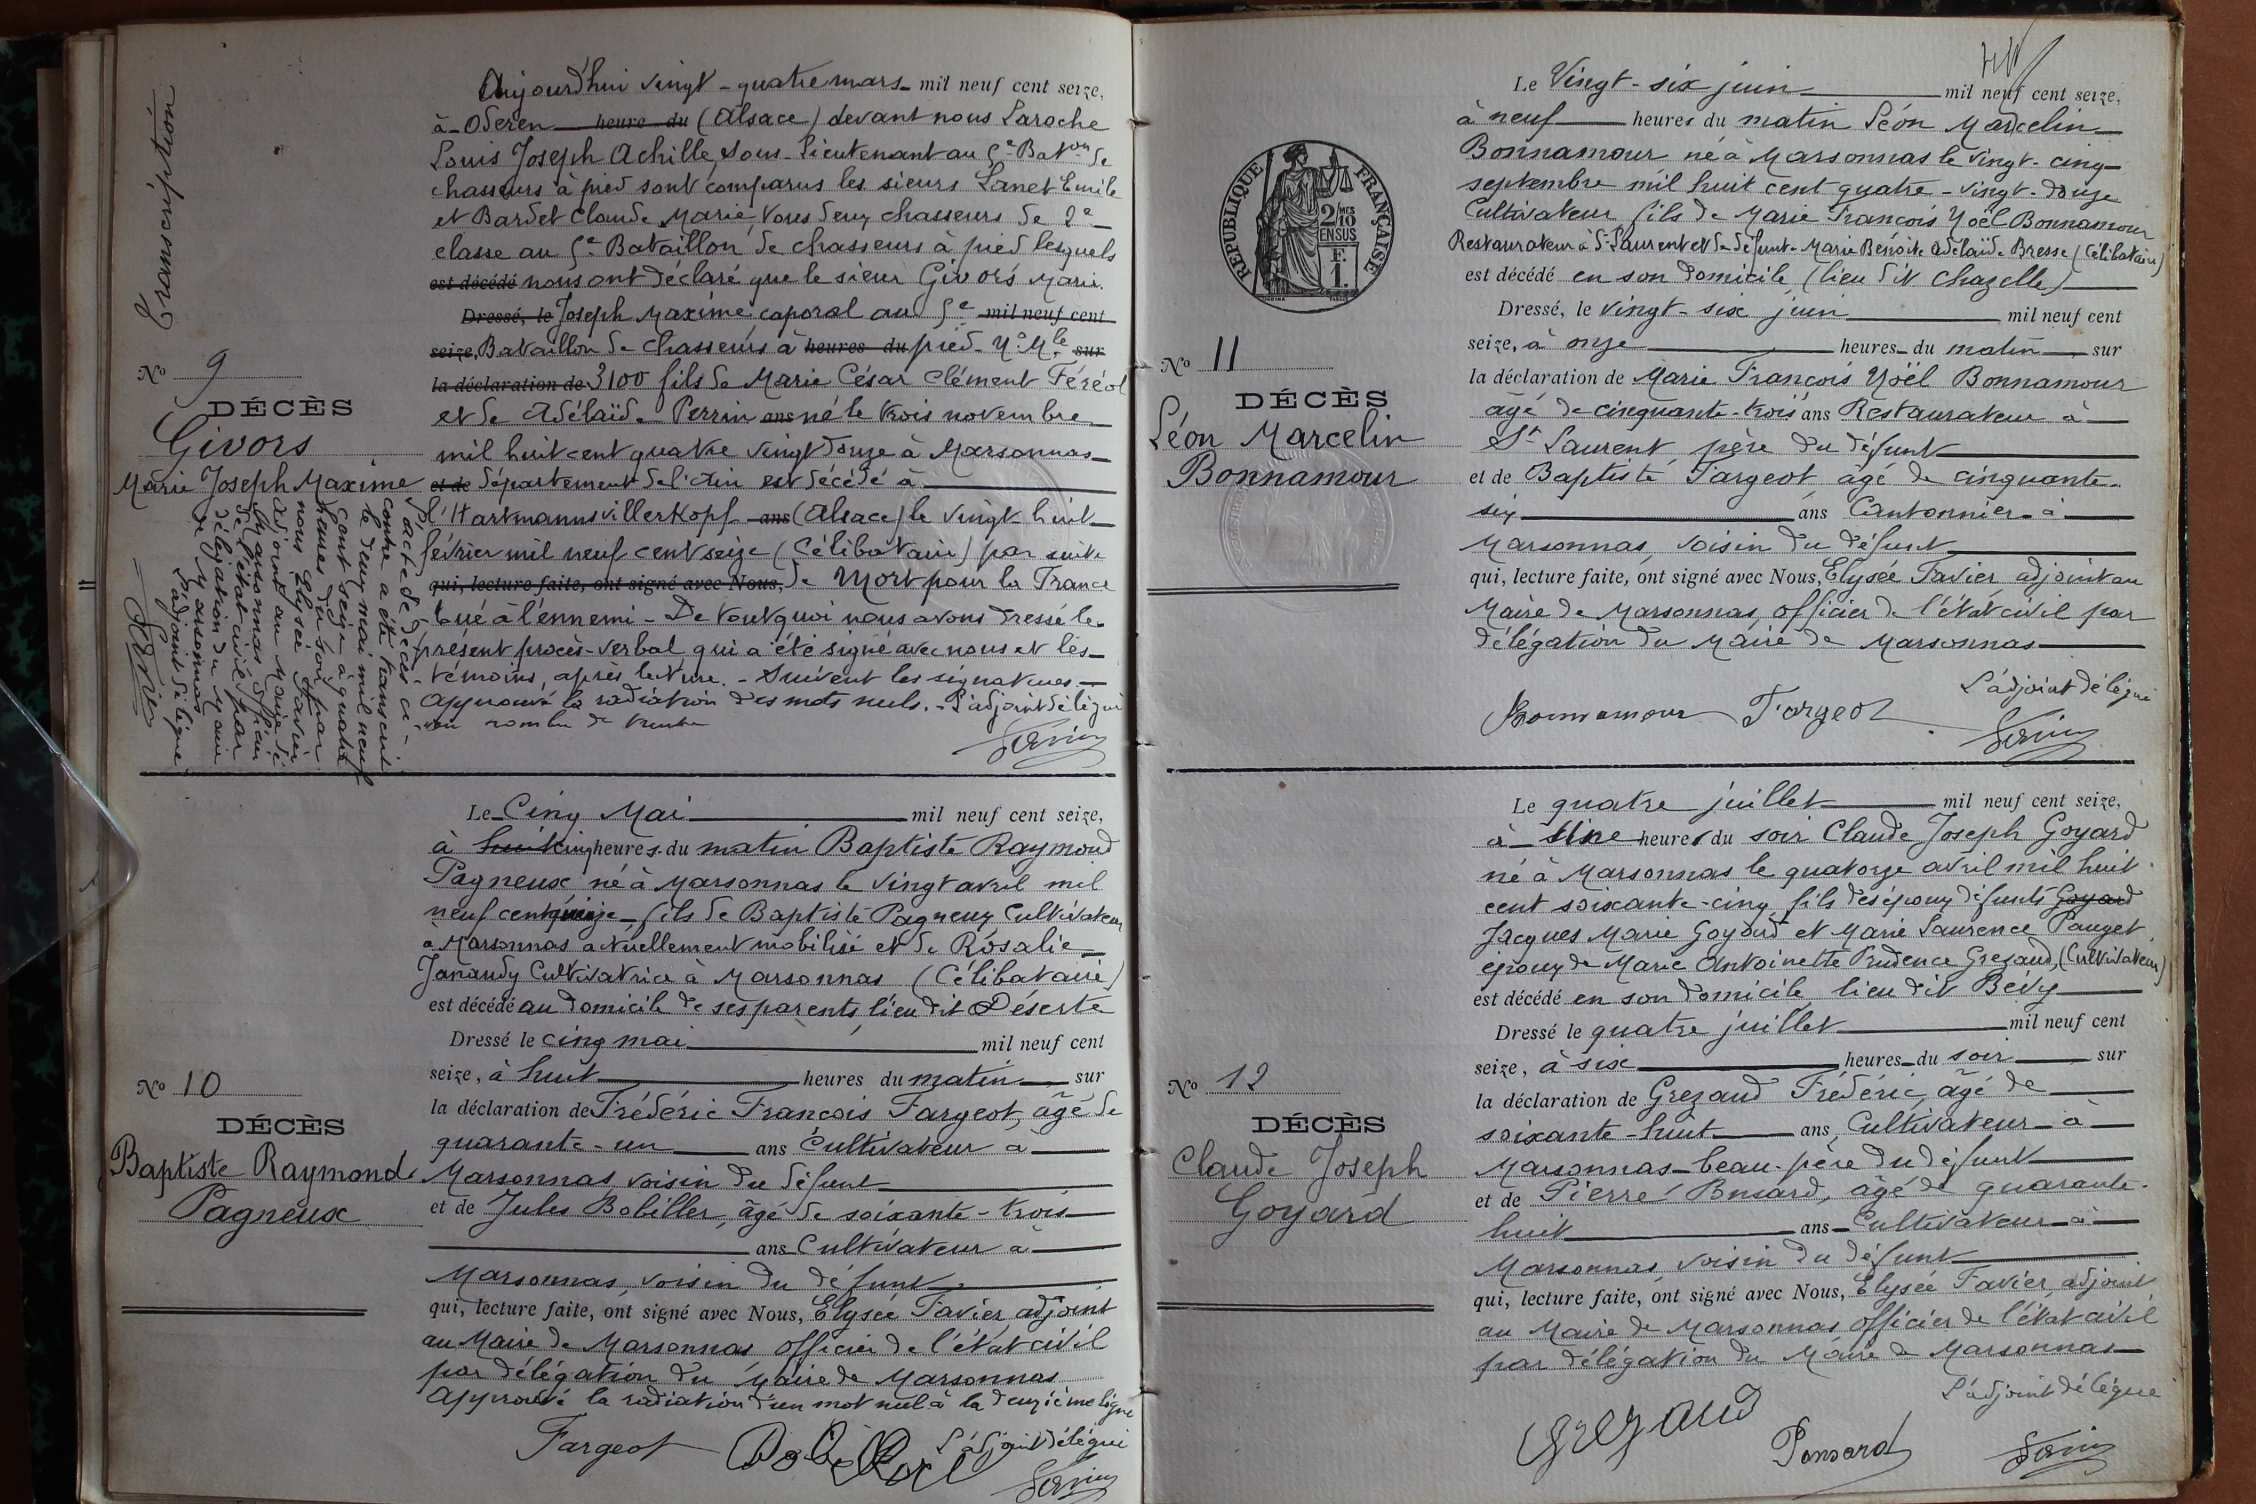 Transcription
No 9
DÉCÈS
Givors
Marie Joseph Maxime
L'acte de décès ci-
contre a été transcrit
le deux mai mil neuf
cent seize à quatre
heures du soir par
nous Elysée Favier
adjoint au Maire de
Marsonnas officier
de l'état civil par
délégation du Maire
de Marsonnas
L'adjoint délégué
Favier
Aujourd'hui vingt-quatre mars mil neuf cent seize,
à Oderen heure du (Alsace) devant nous Laroche
Louis Joseph Achille, sous-lieutenant au 5e Baton de
chasseurs à pied sont comparus les sieurs Lanet Emile
et Bardet Claude Marie, tous deux chasseurs de 2e
classe au 5e Bataillon de chasseurs à pied lesquels
est décédé nous ont déclaré que le sieur Givors Marie
Dressé, le Joseph Maxime caporal au 5e mil neuf cent
seize, Bataillon de chasseurs à heures du pied No Mle sur
la déclaration de 3100 fils de Marie César Clément Féréol
et de Adélaïde Perrin ans né le trois novembre
mil huit cent quatre vingt douze à Marsonnas
et de département de l'Ain est décédé à
l'Hartmannsvillerkopf ans (Alsace) le vingt huit
février mil neuf cent seize (Célibataire) par suite
qui, lecture faite, ont signé avec Nous, de Mort pour la France
tué à l'ennemi - De tout quoi nous avons dressé le
présent procès-verbal qui a été signé avec nous et les
témoins, après lecture. - Suivent les signatures
Approuvé la radiation des mots nuls. - L'adjoint délégué
au nombre de trente
Favier
No 10
DÉCÈS
Baptiste Raymond
Pagneux
Le Cinq Mai mil neuf cent seize,
à huit cinq heures du matin Baptiste Raymond
Pagneux né à Marsonnas le vingt avril mil
neuf cent quinze, fils de Baptiste Pagneux Cultivateur
à Marsonnas actuellement mobilisé et de Rosalie
Janaudy Cultivatrice à Marsonnas (Célibataire)
est décédé au domicile de ses parents, lieu dit Déserte
Dressé le cinq mai mil neuf cent
seize, à huit heures du matin sur
la déclaration de Frédéric François Fargeot, âgé de
quarante-un ans Cultivateur à
Marsonnas voisin du défunt
et de Jules Bobiller, âgé de soixante-trois
ans Cultivateur à
Marsonnas, voisin du défunt
qui, lecture faite, ont signé avec Nous, Elysée Favier adjoint
au Maire de Marsonnas officier de l'état civil
par délégation du Maire de Marsonnas
Approuvé la radiation d'un mot nul à la deuxième ligne
L'adjoint délégué
Fargeot Bobiller Favier
No 11
DÉCÈS
Léon Marcelin
Bonnamour
RÉPUBLIQUE FRANÇAISE
2/10
EN SUS
F.
1.
Le Vingt-six juin mil neuf cent seize,
à neuf heures du matin Léon Marcelin
Bonnamour né à Marsonnas le vingt-cinq
septembre mil huit cent quatre-vingt-douze
Cultivateur fils de Marie François Yoël Bonnamour
Restaurateur à St Laurent et de défunte Marie Benoite Adélaïde Bresse (Célibataire)
est décédé en son domicile, (lieu dit Chazelle)
Dressé, le vingt-six juin mil neuf cent
seize, à onze heures du matin sur
la déclaration de Marie François Yoël Bonnamour
âgé de cinquante-trois ans Restaurateur à
St Laurent, père du défunt
et de Baptiste Fargeot âgé de cinquante-
six ans Cantonnier à
Marsonnas, voisin du défunt
qui, lecture faite, ont signé avec Nous, Elysée Favier, adjoint au
Maire de Marsonnas, officier de l'état civil par
délégation du Maire de Marsonnas
L'adjoint délégué
Bonnamour Fargeot Favier
No 12
DÉCÈS
Claude Joseph
Goyard
Le quatre juillet mil neuf cent seize,
à une heure du soir Claude Joseph Goyard
né à Marsonnas le quatorze avril mil huit
cent soixante-cinq fils des époux défunts Goyard
Jacques Marie Goyard et Marie Laurence Pauget
époux de Marie Antoinette Prudence Grezaud, (Cultivateur)
est décédé en son domicile, lieu dit Bévy
Dressé le quatre juillet mil neuf cent
seize, à six heures du soir sur
la déclaration de Grezaud Frédéric, âgé de
soixante-huit ans, Cultivateur à
Marsonnas beau-père du défunt
et de Pierre âgé de quarante-
huit ans Cultivateur à
Marsonnas, voisin du défunt
qui, lecture faite, ont signé avec Nous, Elysée Favier, adjoint
au Maire de Marsonnas officier de l'état civil
par délégation du Maire de Marsonnas
L'adjoint délégué
Grezaud Favier